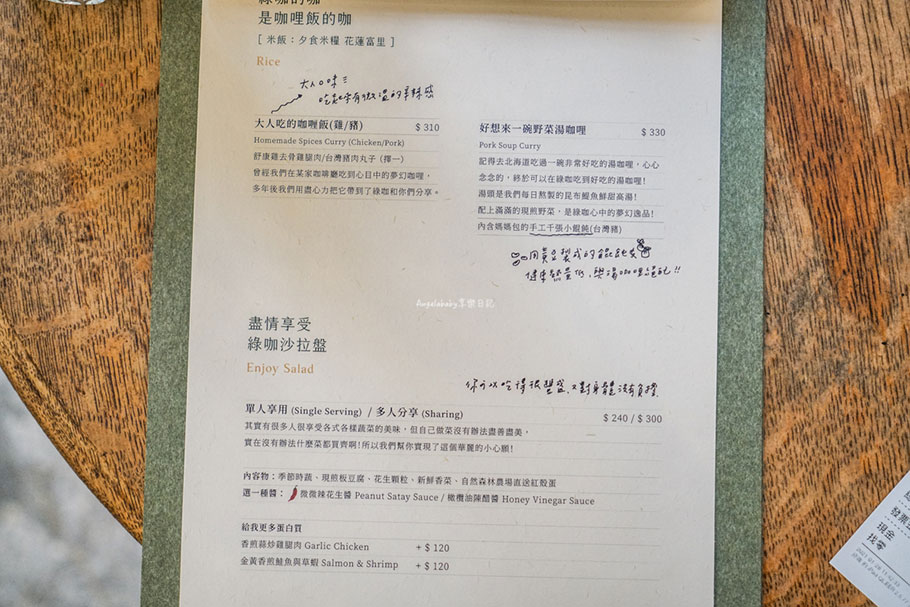 綠咖的咖
是咖哩飯的咖
[ 米飯：夕食米糧 花蓮富里 ]
Rice
大人口味
吃起來有微溫的辛辣感
大人吃的咖哩飯(雞/豬) $ 310
Homemade Spices Curry (Chicken/Pork)
舒康雞去骨雞腿肉/台灣豬肉丸子（擇一）
曾經我們在某家咖啡廳吃到心目中的夢幻咖哩，
多年後我們用盡心力把它帶到了綠咖和你們分享。
好想來一碗野菜湯咖哩 $ 330
Pork Soup Curry
記得去北海道吃過一碗非常好吃的湯咖哩，心心
念念的，終於可以在綠咖吃到好吃的湯咖哩!
湯頭是我們每日熬製的昆布鰹魚鮮甜高湯!
配上滿滿的現煎野菜，是綠咖心中的夢幻逸品!
內含媽媽包的手工千張小餛飩(台灣豬)
用黃豆製成的餛飩皮
健康熱量低，與湯咖哩絕配!!
Angelababy享樂日記
盡情享受
綠咖沙拉盤
Enjoy Salad
你可以吃得很豐盛，又對身體沒有負擔
單人享用 (Single Serving) / 多人分享 (Sharing) $ 240 / $ 300
其實有很多人很享受各式各樣蔬菜的美味，但自己做菜沒有辦法盡善盡美，
實在沒有辦法什麼菜都買齊啊!所以我們幫你實現了這個華麗的小心願!
內容物：季節時蔬、現煎板豆腐、花生顆粒、新鮮香菜、自然森林農場直送紅殼蛋
選一種醬： 微微辣花生醬 Peanut Satay Sauce / 橄欖油陳醋醬 Honey Vinegar Sauce
給我更多蛋白質
香煎蒜炒雞腿肉 Garlic Chicken + $ 120
金黃香煎鮭魚與草蝦 Salmon & Shrimp + $ 120
發票
現金
找零